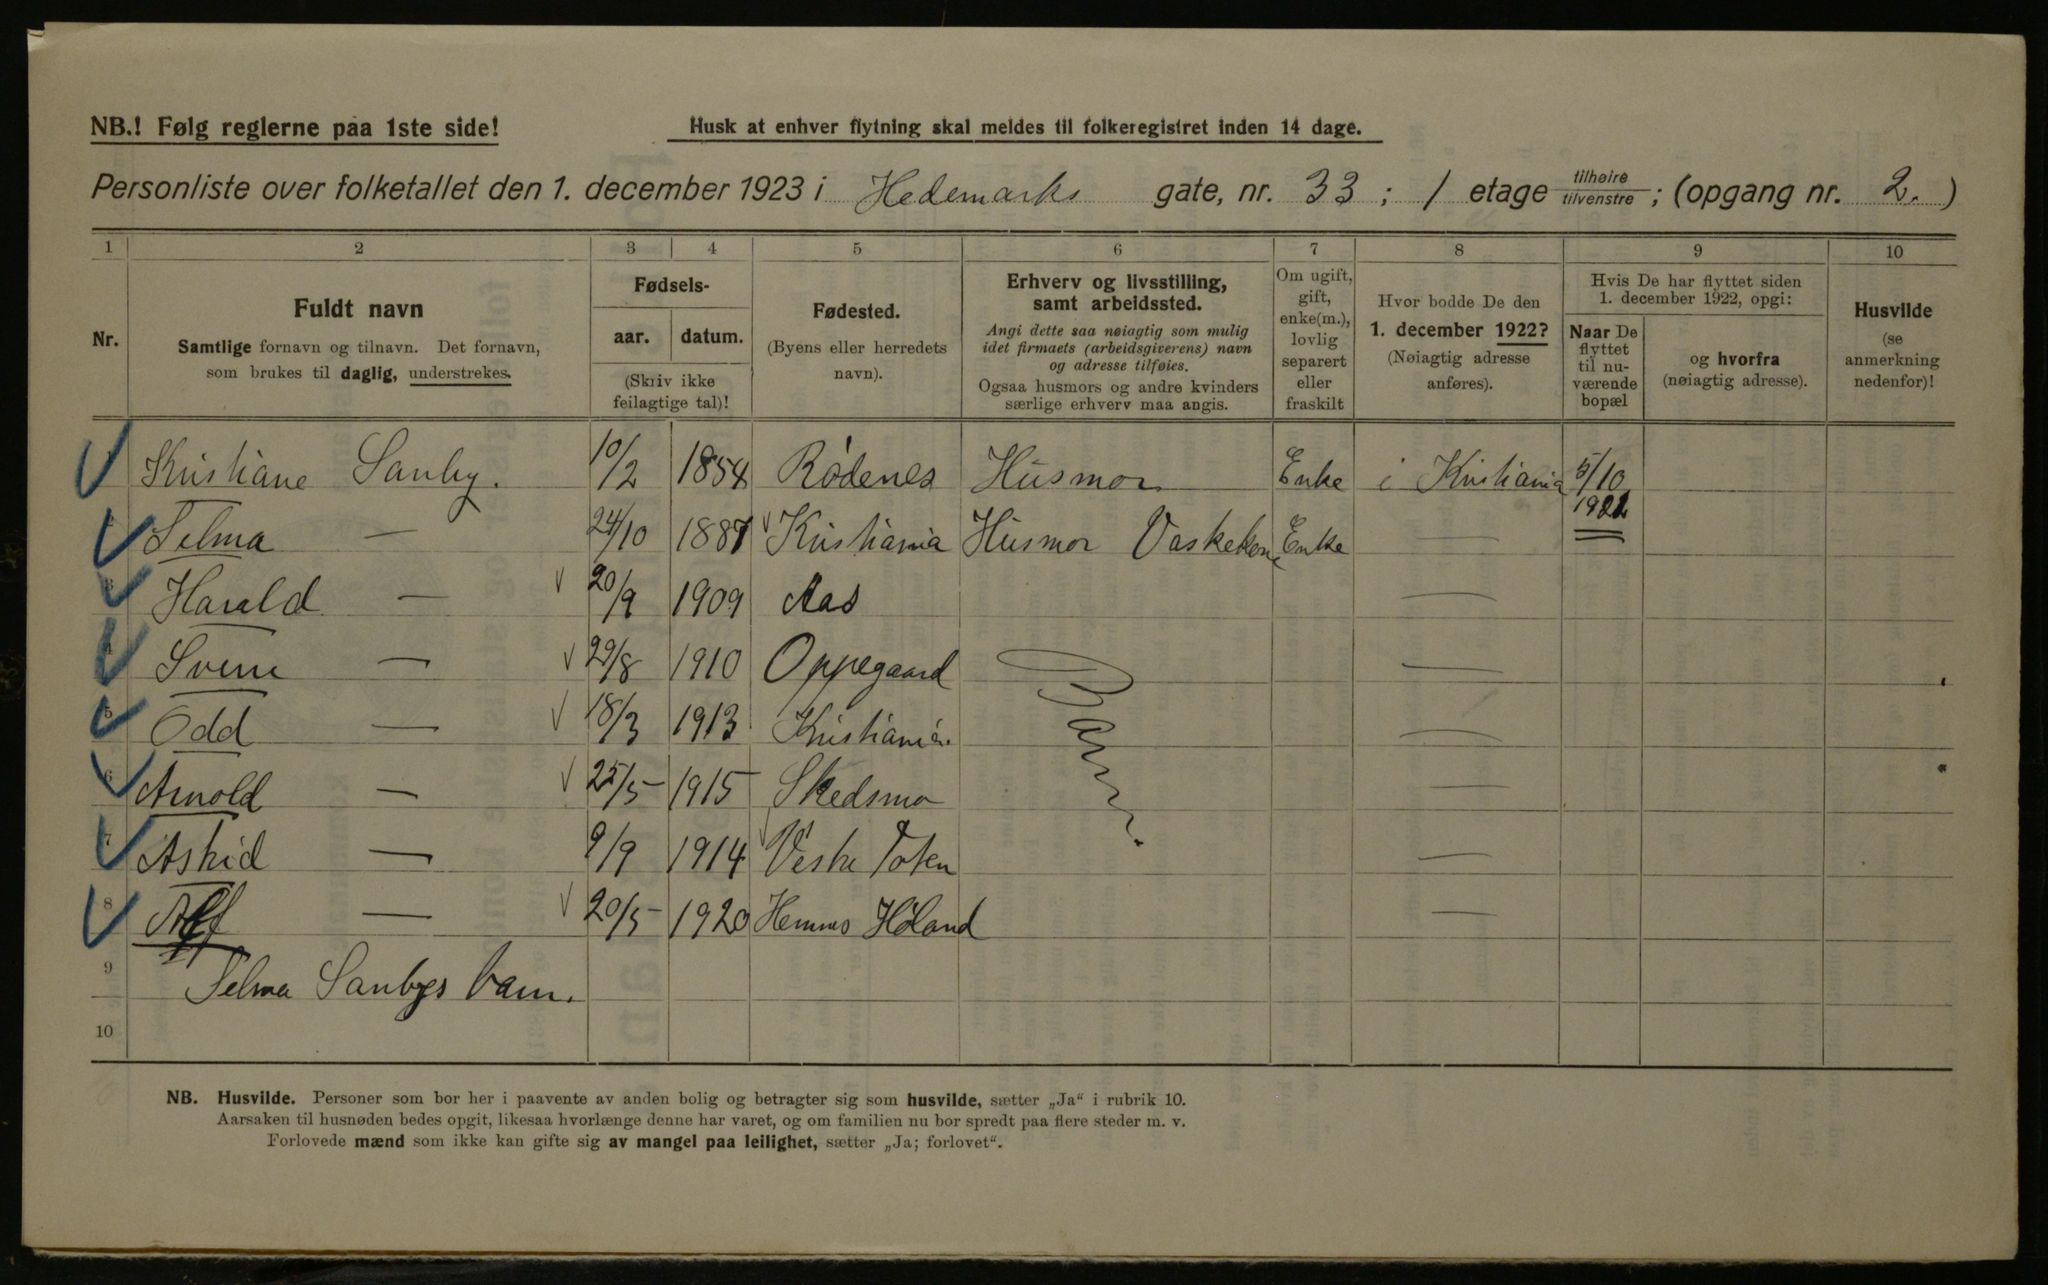 NB.! Følg reglerne paa 1ste side!
Husk at enhver flytning skal meldes til folkeregistret inden 14 dage.
Personliste over folketallet den 1. december 1923 i Hedemarks gate, nr. 33 ; 1 etage tilhøire/tilvenstre ; (opgang nr. 2. )
1 2 3 4 5 6 7 8 9 10
Nr.
Fuldt navn
Samtlige fornavn og tilnavn. Det fornavn,
som brukes til daglig, understrekes.
Fødsels-
aar. datum.
(Skriv ikke
feilagtige tal)!
Fødested.
(Byens eller herredets
navn).
Erhverv og livsstilling,
samt arbeidssted.
Angi dette saa nøiagtig som mulig
idet firmaets (arbeidsgiverens) navn
og adresse tilføies.
Ogsaa husmors og andre kvinders
særlige erhverv maa angis.
Om ugift,
gift,
enke(m.),
lovlig
separert
eller
fraskilt
Hvor bodde De den
1. december 1922?
(Nøiagtig adresse
anføres).
Hvis De har flyttet siden
1. december 1922, opgi:
Naar De
flyttet
til nu-
værende
bopæl
og hvorfra
(nøiagtig adresse).
Husvilde
(se
anmerkning
nedenfor)!
Kristiane Sanby. 10/2 1854 Rødenes Husmor Enke i Kristiania 5/10
1921
2 Selma — 24/10 1887 Kristiania Husmor Vaskekone Enke —
3 Harald — 20/9 1909 Aas —
4 Svein — 29/8 1910 Oppegaard —
5 Odd — 18/3 1913 Kristiania. —
Barn.
6 Arnold — 25/5 1915 Skedsmo —
7 Astrid — 9/9 1914 Vestre Toten —
8 Alf — 20/5 1920 Hemnes Høland —
9 Selma Sanbys barn.
10
NB. Husvilde. Personer som bor her i paavente av anden bolig og betragter sig som husvilde, sætter „Ja“ i rubrik 10.
Aarsaken til husnøden bedes opgit, likesaa hvorlænge denne har varet, og om familien nu bor spredt paa flere steder m. v.
Forlovede mænd som ikke kan gifte sig av mangel paa leilighet, sætter „Ja; forlovet“.